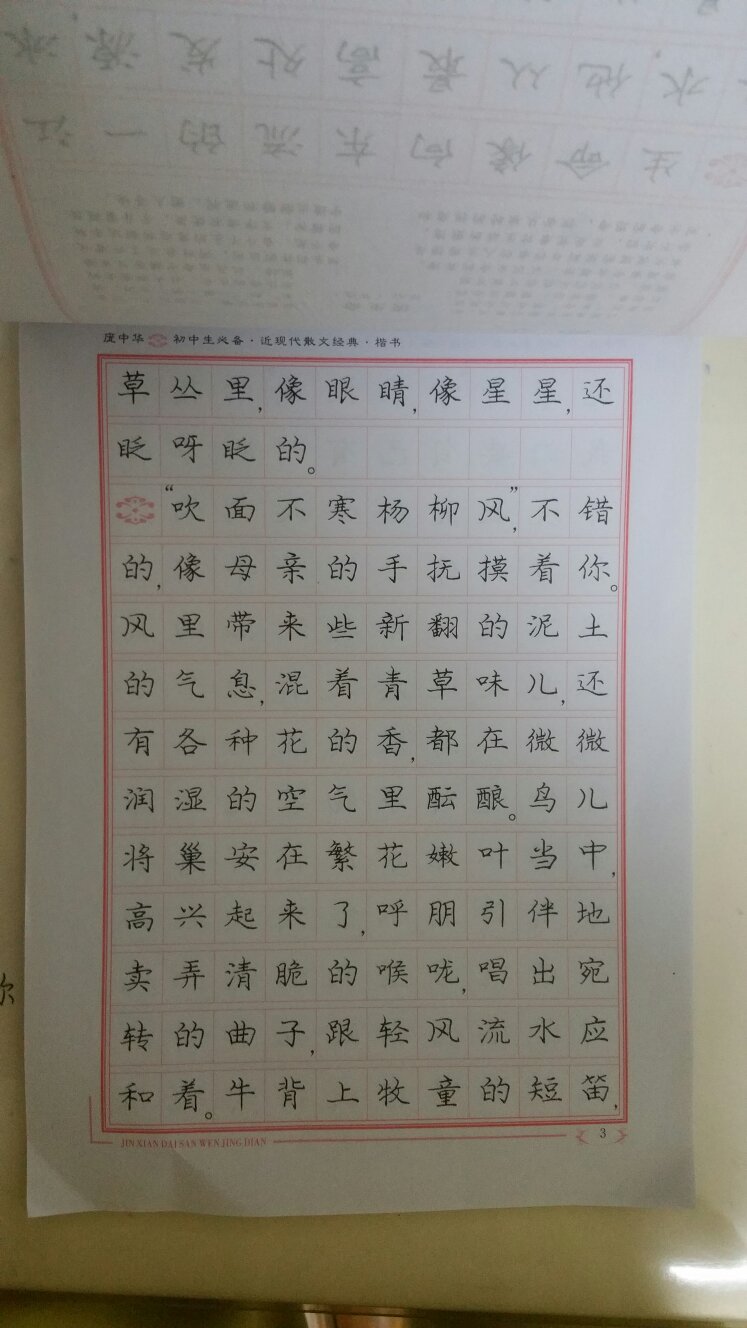 庞中华 初中生必备·近现代散文经典·楷书
草丛里,像眼睛,像星星,还
眨呀眨的。
“吹面不寒杨柳风”,不错
的,像母亲的手抚摸着你。
风里带来些新翻的泥土
的气息,混着青草味儿,还
有各种花的香,都在微微
润湿的空气里酝酿。鸟儿
将巢安在繁花嫩叶当中,
高兴起来了,呼朋引伴地
卖弄清脆的喉咙,唱出宛
转的曲子,跟轻风流水应
和着。牛背上牧童的短笛,
JIN XIAN DAI SAN WEN JING DIAN
3